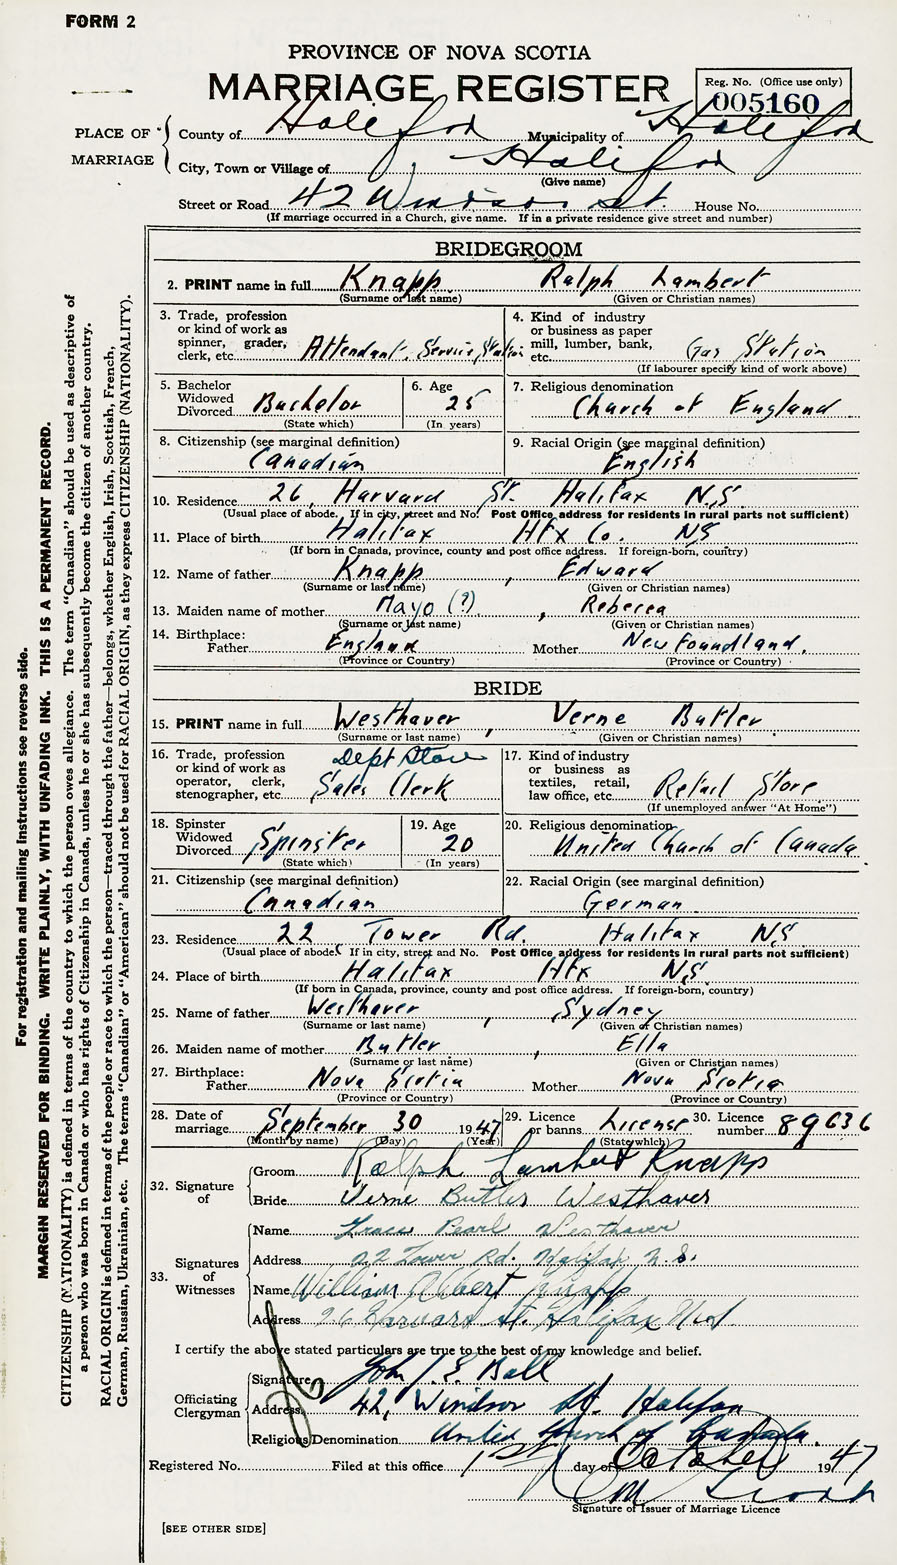 FORM 2
PROVINCE OF NOVA SCOTIA
MARRIAGE REGISTER
Reg. No. (Office use only)
005160
PLACE OF MARRIAGE
County of Halifax Municipality of Halifax
City, Town or Village of Halifax
(Give name)
Street or Road 42 Windsor St. House No.
(If marriage occurred in a Church, give name. If in a private residence give street and number)
BRIDEGROOM
2. PRINT name in full Knapp Ralph Lambert
(Surname or last name) (Given or Christian names)
3. Trade, profession or kind of work as spinner, grader, clerk, etc. Attendant, Service Station
4. Kind of industry or business as paper mill, lumber, bank, etc. Gas Station
(If labourer specify kind of work above)
5. Bachelor Widowed Divorced Bachelor
(State which)
6. Age 25
(In years)
7. Religious denomination Church of England
8. Citizenship (see marginal definition) Canadian
9. Racial Origin (see marginal definition) English
10. Residence 26, Harvard St. Halifax N.S
(Usual place of abode. If in city, street and No. Post Office address for residents in rural parts not sufficient)
11. Place of birth Halifax Hfx Co. NS
(If born in Canada, province, county and post office address. If foreign-born, country)
12. Name of father Knapp, Edward
(Surname or last name) (Given or Christian names)
13. Maiden name of mother Mayo (?), Rebecca
(Surname or last name) (Given or Christian names)
14. Birthplace: Father England Mother Newfoundland.
(Province or Country) (Province or Country)
BRIDE
15. PRINT name in full Westhaver, Verne Butler
(Surname or last name) (Given or Christian names)
16. Trade, profession or kind of work as operator, clerk, stenographer, etc. Dept Store Sales Clerk
17. Kind of industry or business as textiles, retail, law office, etc. Retail Store
(If unemployed answer "At Home")
18. Spinster Widowed Divorced Spinster
(State which)
19. Age 20
(In years)
20. Religious denomination United Church of Canada
21. Citizenship (see marginal definition) Canadian
22. Racial Origin (see marginal definition) German
23. Residence 22 Tower Rd. Halifax NS
(Usual place of abode. If in city, street and No. Post Office address for residents in rural parts not sufficient)
24. Place of birth Halifax Hfx N.S
(If born in Canada, province, county and post office address. If foreign-born, country)
25. Name of father Westhaver, Sydney
(Surname or last name) (Given or Christian names)
26. Maiden name of mother Butler, Ella
(Surname or last name) (Given or Christian names)
27. Birthplace: Father Nova Scotia Mother Nova Scotia
(Province or Country) (Province or Country)
28. Date of marriage September 30 1947
(Month by name) (Day) (Year)
29. Licence or banns License
(State which)
30. Licence number 89636
32. Signature of
Groom Ralph Lambert Knapp
Bride Verne Butler Westhaver
33. Signatures of Witnesses
Name Grace Pearl Westhaver
Address 22 Tower Rd. Halifax N.S.
Name William Albert Knapp
Address 26 Harvard St. Halifax
I certify the above stated particulars are true to the best of my knowledge and belief.
Officiating Clergyman
Signature John J. E. Ball
Address 42, Windsor St. Halifax
Religious Denomination United Church of Canada.
Registered No. Filed at this office 1st day of October 1947
Signature of Issuer of Marriage Licence
[SEE OTHER SIDE]
For registration and mailing instructions see reverse side.
MARGIN RESERVED FOR BINDING. WRITE PLAINLY, WITH UNFADING INK. THIS IS A PERMANENT RECORD.
CITIZENSHIP (NATIONALITY) is defined in terms of the country to which the person owes allegiance. The term "Canadian" should be used as descriptive of
a person who was born in Canada or who has rights of Citizenship in Canada, unless he or she has subsequently become the citizen of another country.
RACIAL ORIGIN is defined in terms of the people or race to which the person—traced through the father—belongs, whether English, Irish, Scottish, French,
German, Russian, Ukrainian, etc. The terms "Canadian" or "American" should not be used for RACIAL ORIGIN, as they express CITIZENSHIP (NATIONALITY).